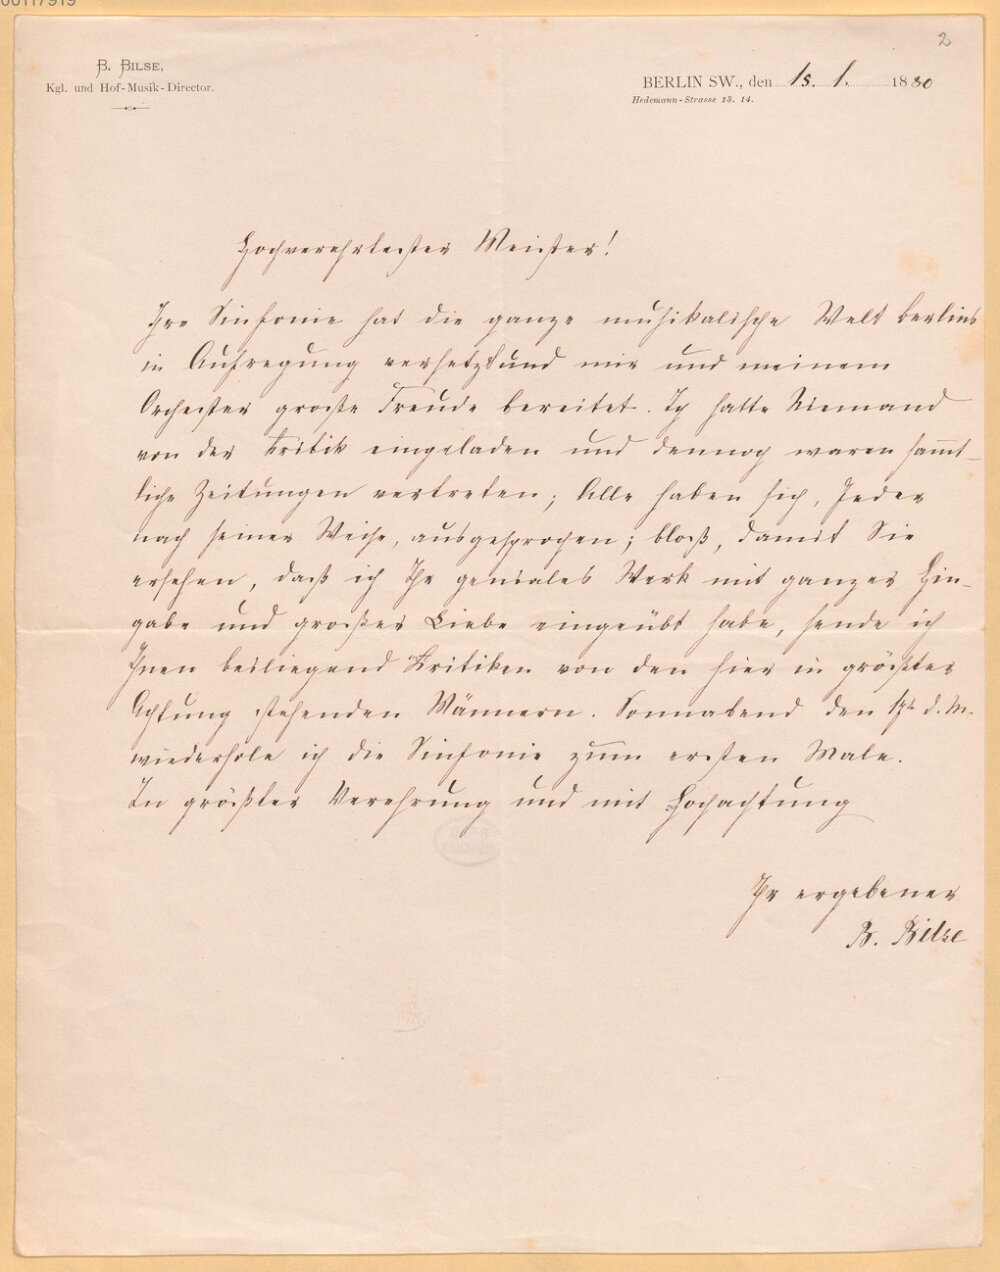 00117919
2
B. BILSE,
Kgl. und Hof-Musik-Director.
BERLIN SW., den 15. 1. 1880
Hedemann-Strasse 13. 14.
Hochverehrtester Meister!
Ihre Sinfonie hat die ganze musikalische Welt Berlins
in Aufregung versetzt und mir und meinem
Orchester große Freude bereitet. Ich hatte Niemand
von der Kritik eingeladen und dennoch waren sam̅t-
liche Zeitungen vertreten; Alle haben sich, Jeder
nach seiner Weise, ausgesprochen; bloß, damit Sie
ersehen, daß ich Ihr geniales Werk mit ganzer Hin-
gabe und großer Liebe eingeübt habe, sende ich
Ihnen beiliegend Kritiken von den hier in größter
Achtung stehenden Männern. Sonnabend den 17t d. M.
wiederhole ich die Sinfonie zum ersten Male.
In größter Verehrung und mit Hochachtung
Ihr ergebener
B. Bilse